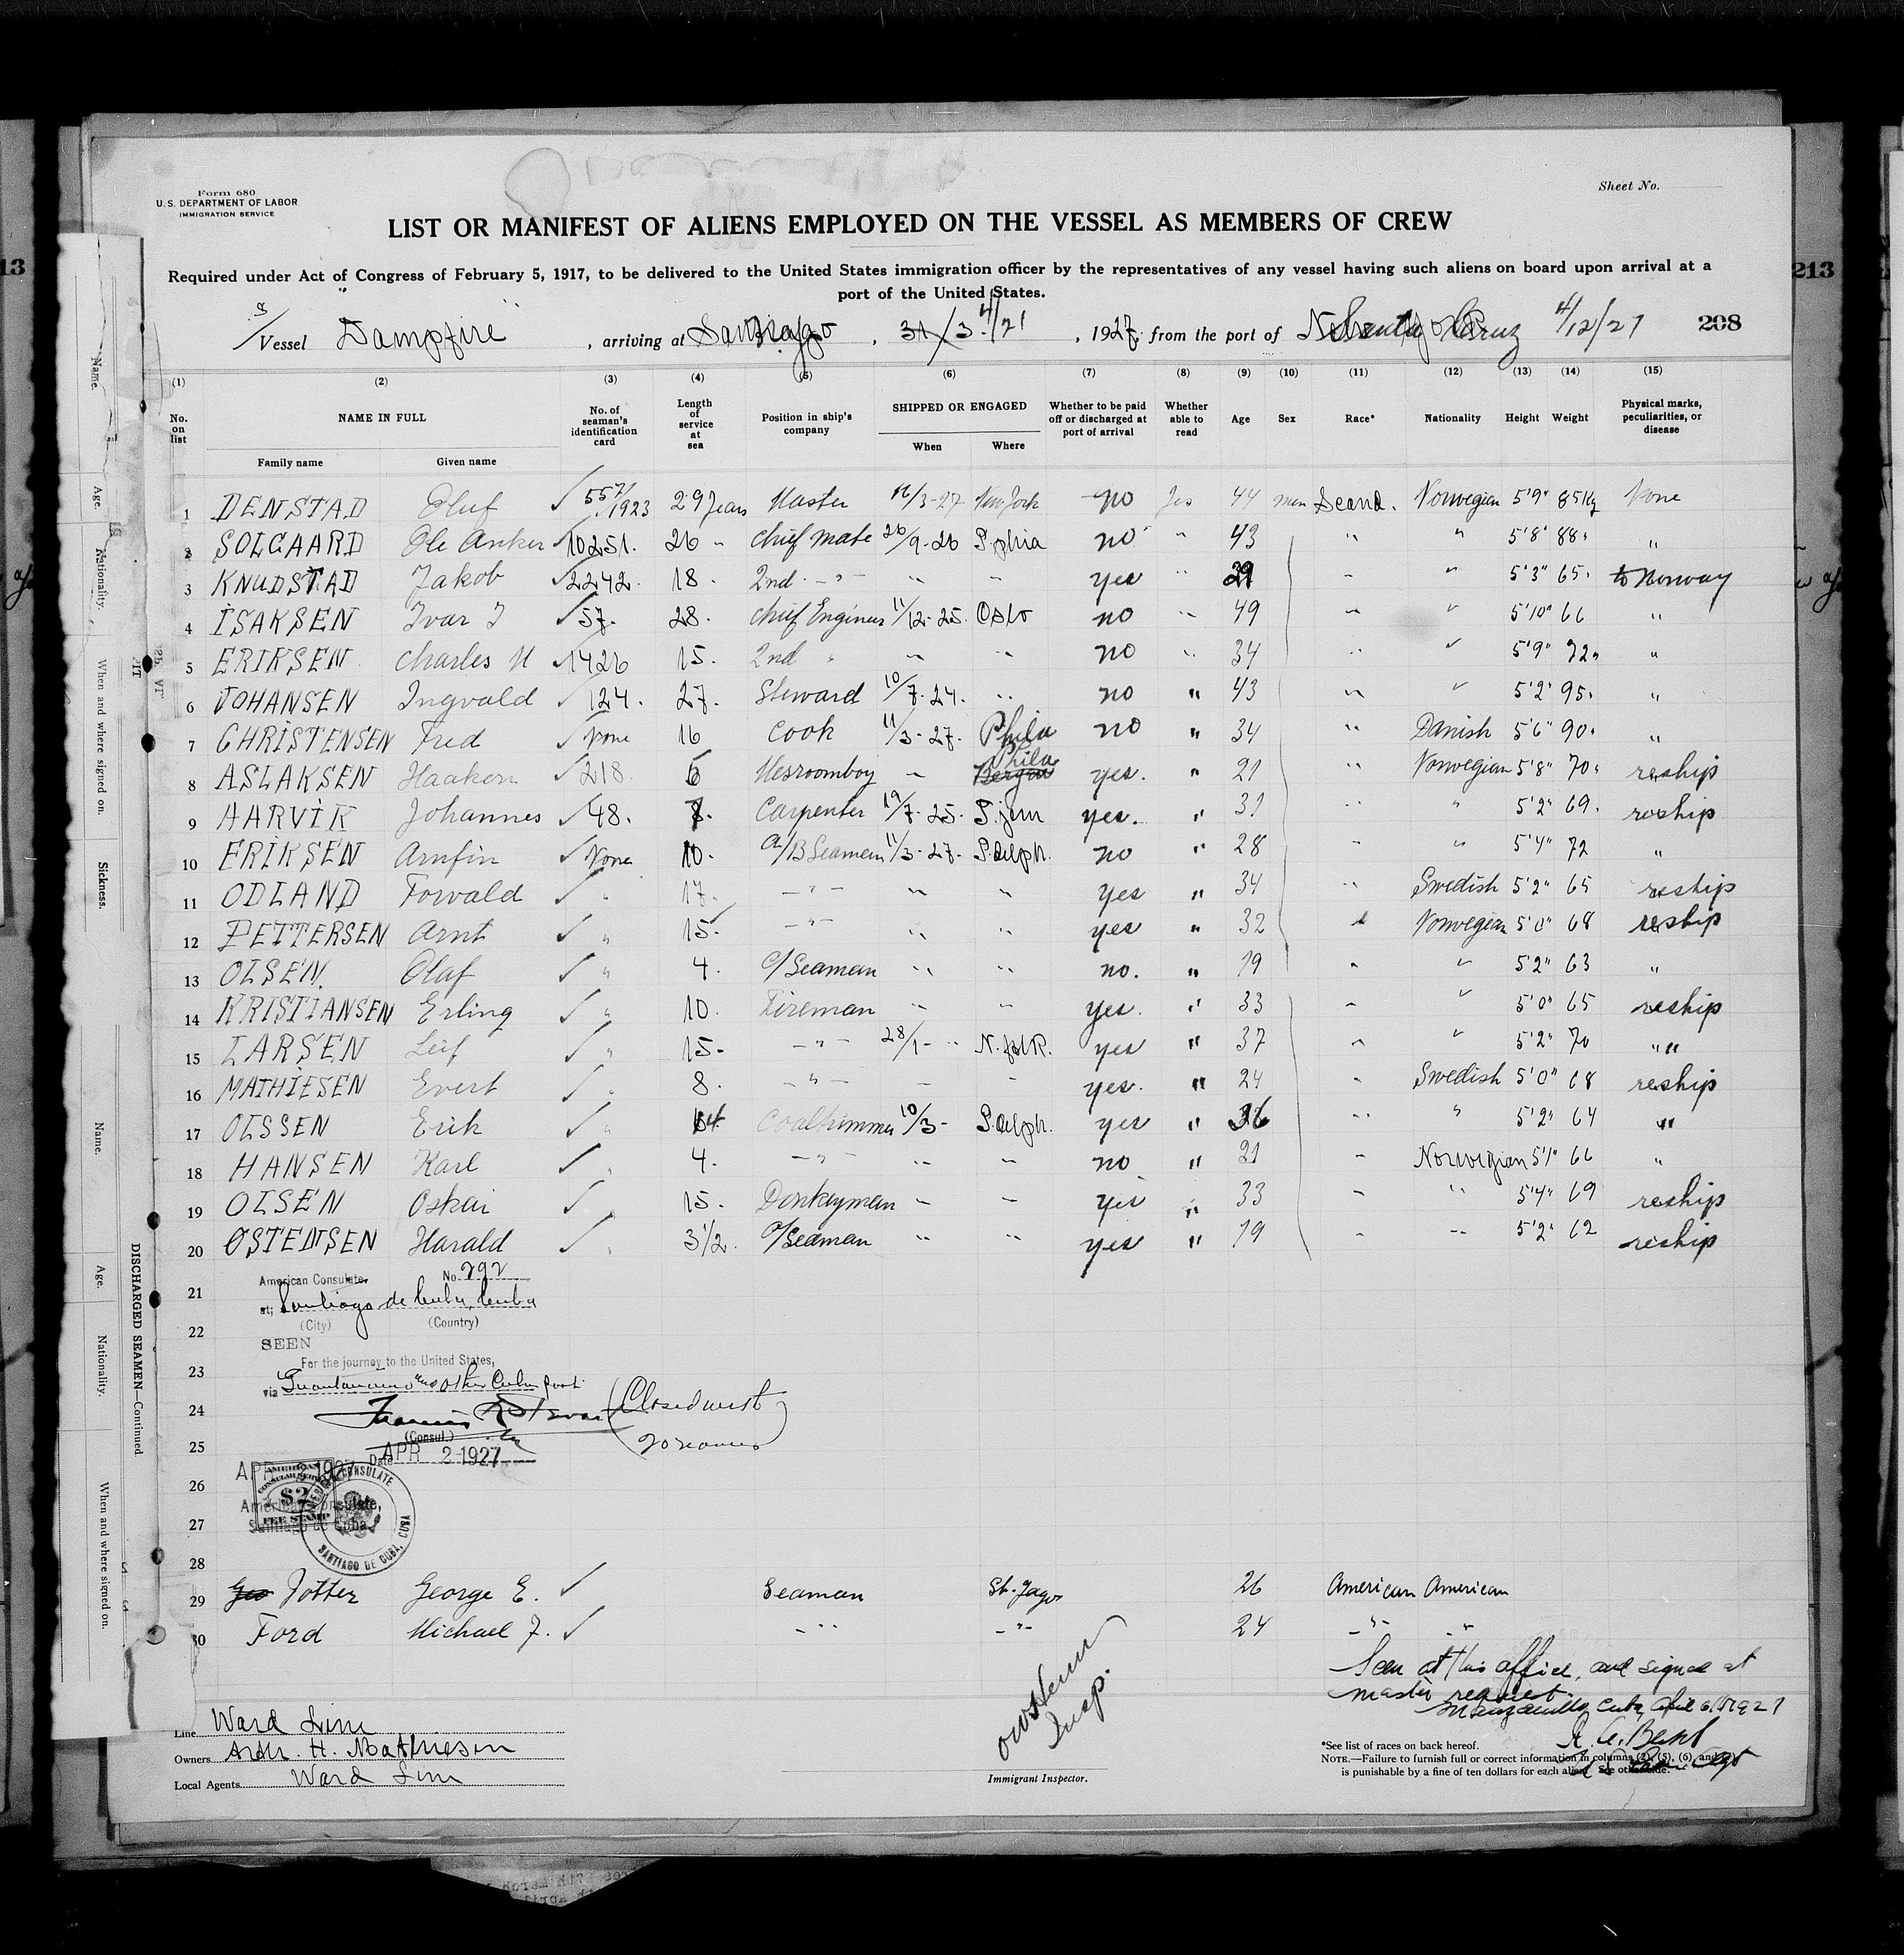 Form 680
U. S. DEPARTMENT OF LABOR
IMMIGRATION SERVICE
Sheet No.
LIST OR MANIFEST OF ALIENS EMPLOYED ON THE VESSEL AS MEMBERS OF CREW
Required under Act of Congress of February 5, 1917, to be delivered to the United States immigration officer by the representatives of any vessel having such aliens on board upon arrival at a
port of the United States.
Vessel Dampfire , arriving at Santiago , 1927, from the port of 4/12/27 208
(1) (2) (3) (4) (5) (6) (7) (8) (9) (10) (11) (12) (13) (14) (15)
No. on list NAME IN FULL Family name Given name No. of seaman's identification card Length of service at sea Position in ship's company SHIPPED OR ENGAGED When Where Whether to be paid off or discharged at port of arrival Whether able to read Age Sex Race* Nationality Height Weight Physical marks, peculiarities, or disease
1 DENSTAD Oluf 557/1923 29 Years Master 3-27 New York no Yes 44 men Scand. Norwegian 5'9" 85 Kg None
2 SOLGAARD Ole Anker 10251. 26 " Chief Mate 26/9-26 P.phia no " 43 " " 5'8" 88 "
3 KNUDSTAD Jakob 2242. 18. 2nd -"- " " yes " 29 " " 5'3" 65. to Norway
4 ISAKSEN Ivar J 57. 28. Chief Engineer 11/12-25. Oslo no " 49 " " 5'10" 66 "
5 ERIKSEN Charles H 1426 15. 2nd " " " no " 34 " " 5'9" 72 "
6 JOHANSEN Ingvald 124. 27. Steward 10/7-24. " no " 43 " " 5'2" 95. "
7 CHRISTENSEN Fred None 16 Cook 11/3-27. Phila no " 34 " Danish 5'6" 90. "
8 ASLAKSEN Haakon 218. 6 Messroomboy " Phila Bergen yes. " 21 " Norwegian 5'8" 70. reship
9 AARVIK Johannes 48. 8. Carpenter 19/7-25. yes. " 31 " " 5'2" 69. reship
10 ERIKSEN Arnfin None 10. A/B Seaman 11/3-27. P.delph. no " 28 " " 5'4" 72 "
11 ODLAND Torvald " 17. -"- " " yes " 34 " Swedish 5'2" 65 reship
12 PETTERSEN Arnt " 15. -"- " " yes " 32 " Norwegian 5'0" 68 reship
13 OLSEN. Olaf " 4. O/Seaman " " no. " 19 " " 5'2" 63 "
14 KRISTIANSEN Erling " 10. Fireman " " yes. " 33 " " 5'0" 65 reship
15 LARSEN Leif " 15. -"- 28/1- " yes " 37 " " 5'2" 70 " "
16 MATHIESEN Evert " 8. -"- " " yes. " 24 " Swedish 5'0" 68 reship
17 OLSSEN Erik " Coaltrimmer 10/3- P.delph. yes " 36 " " 5'2" 64 "
18 HANSEN Karl " 4. -"- " " no " 21 " Norwegian 5'1" 66 "
19 OLSEN Oskar " 15. Donkeyman " " yes " 33 " " 5'4" 69 reship
20 OSTENSEN Harald " 3 1/2. O/Seaman " " yes " 19 " " 5'2" 62 reship
21 American Consulate, No. 292
at; Santiago de Cuba, Cuba
(City) (Country)
22 SEEN
23 For the journey to the United States,
via Guantanamo and other Cuban port
24 (Closed with
(Consul.)
25 Date APR 2-1927
26 AMERICAN CONSULAR SERVICE $2 FEE STAMP
American Consulate,
27 Santiago de Cuba
AMERICAN CONSULATE SANTIAGO DE CUBA, CUBA
28
29 Geo Potter George E. Seaman St. Jago 26 American American
30 Ford Michael F. -"- -"- 24 -"- -"-
Seen at this office, and signed at
master request.
Manzanillo, Cuba, April 6, 1927
Insp.
Line Ward Line
Owners H. Mathiesen
Local Agents Ward Line
Immigrant Inspector.
*See list of races on back hereof.
NOTE.—Failure to furnish full or correct information in columns (2), (5), (6), and (7)
is punishable by a fine of ten dollars for each alien. See other side.
Name.
Age.
Nationality.
When and where signed on.
Sickness.
Name.
Age.
Nationality.
When and where signed on.
DISCHARGED SEAMEN—Continued
213
13